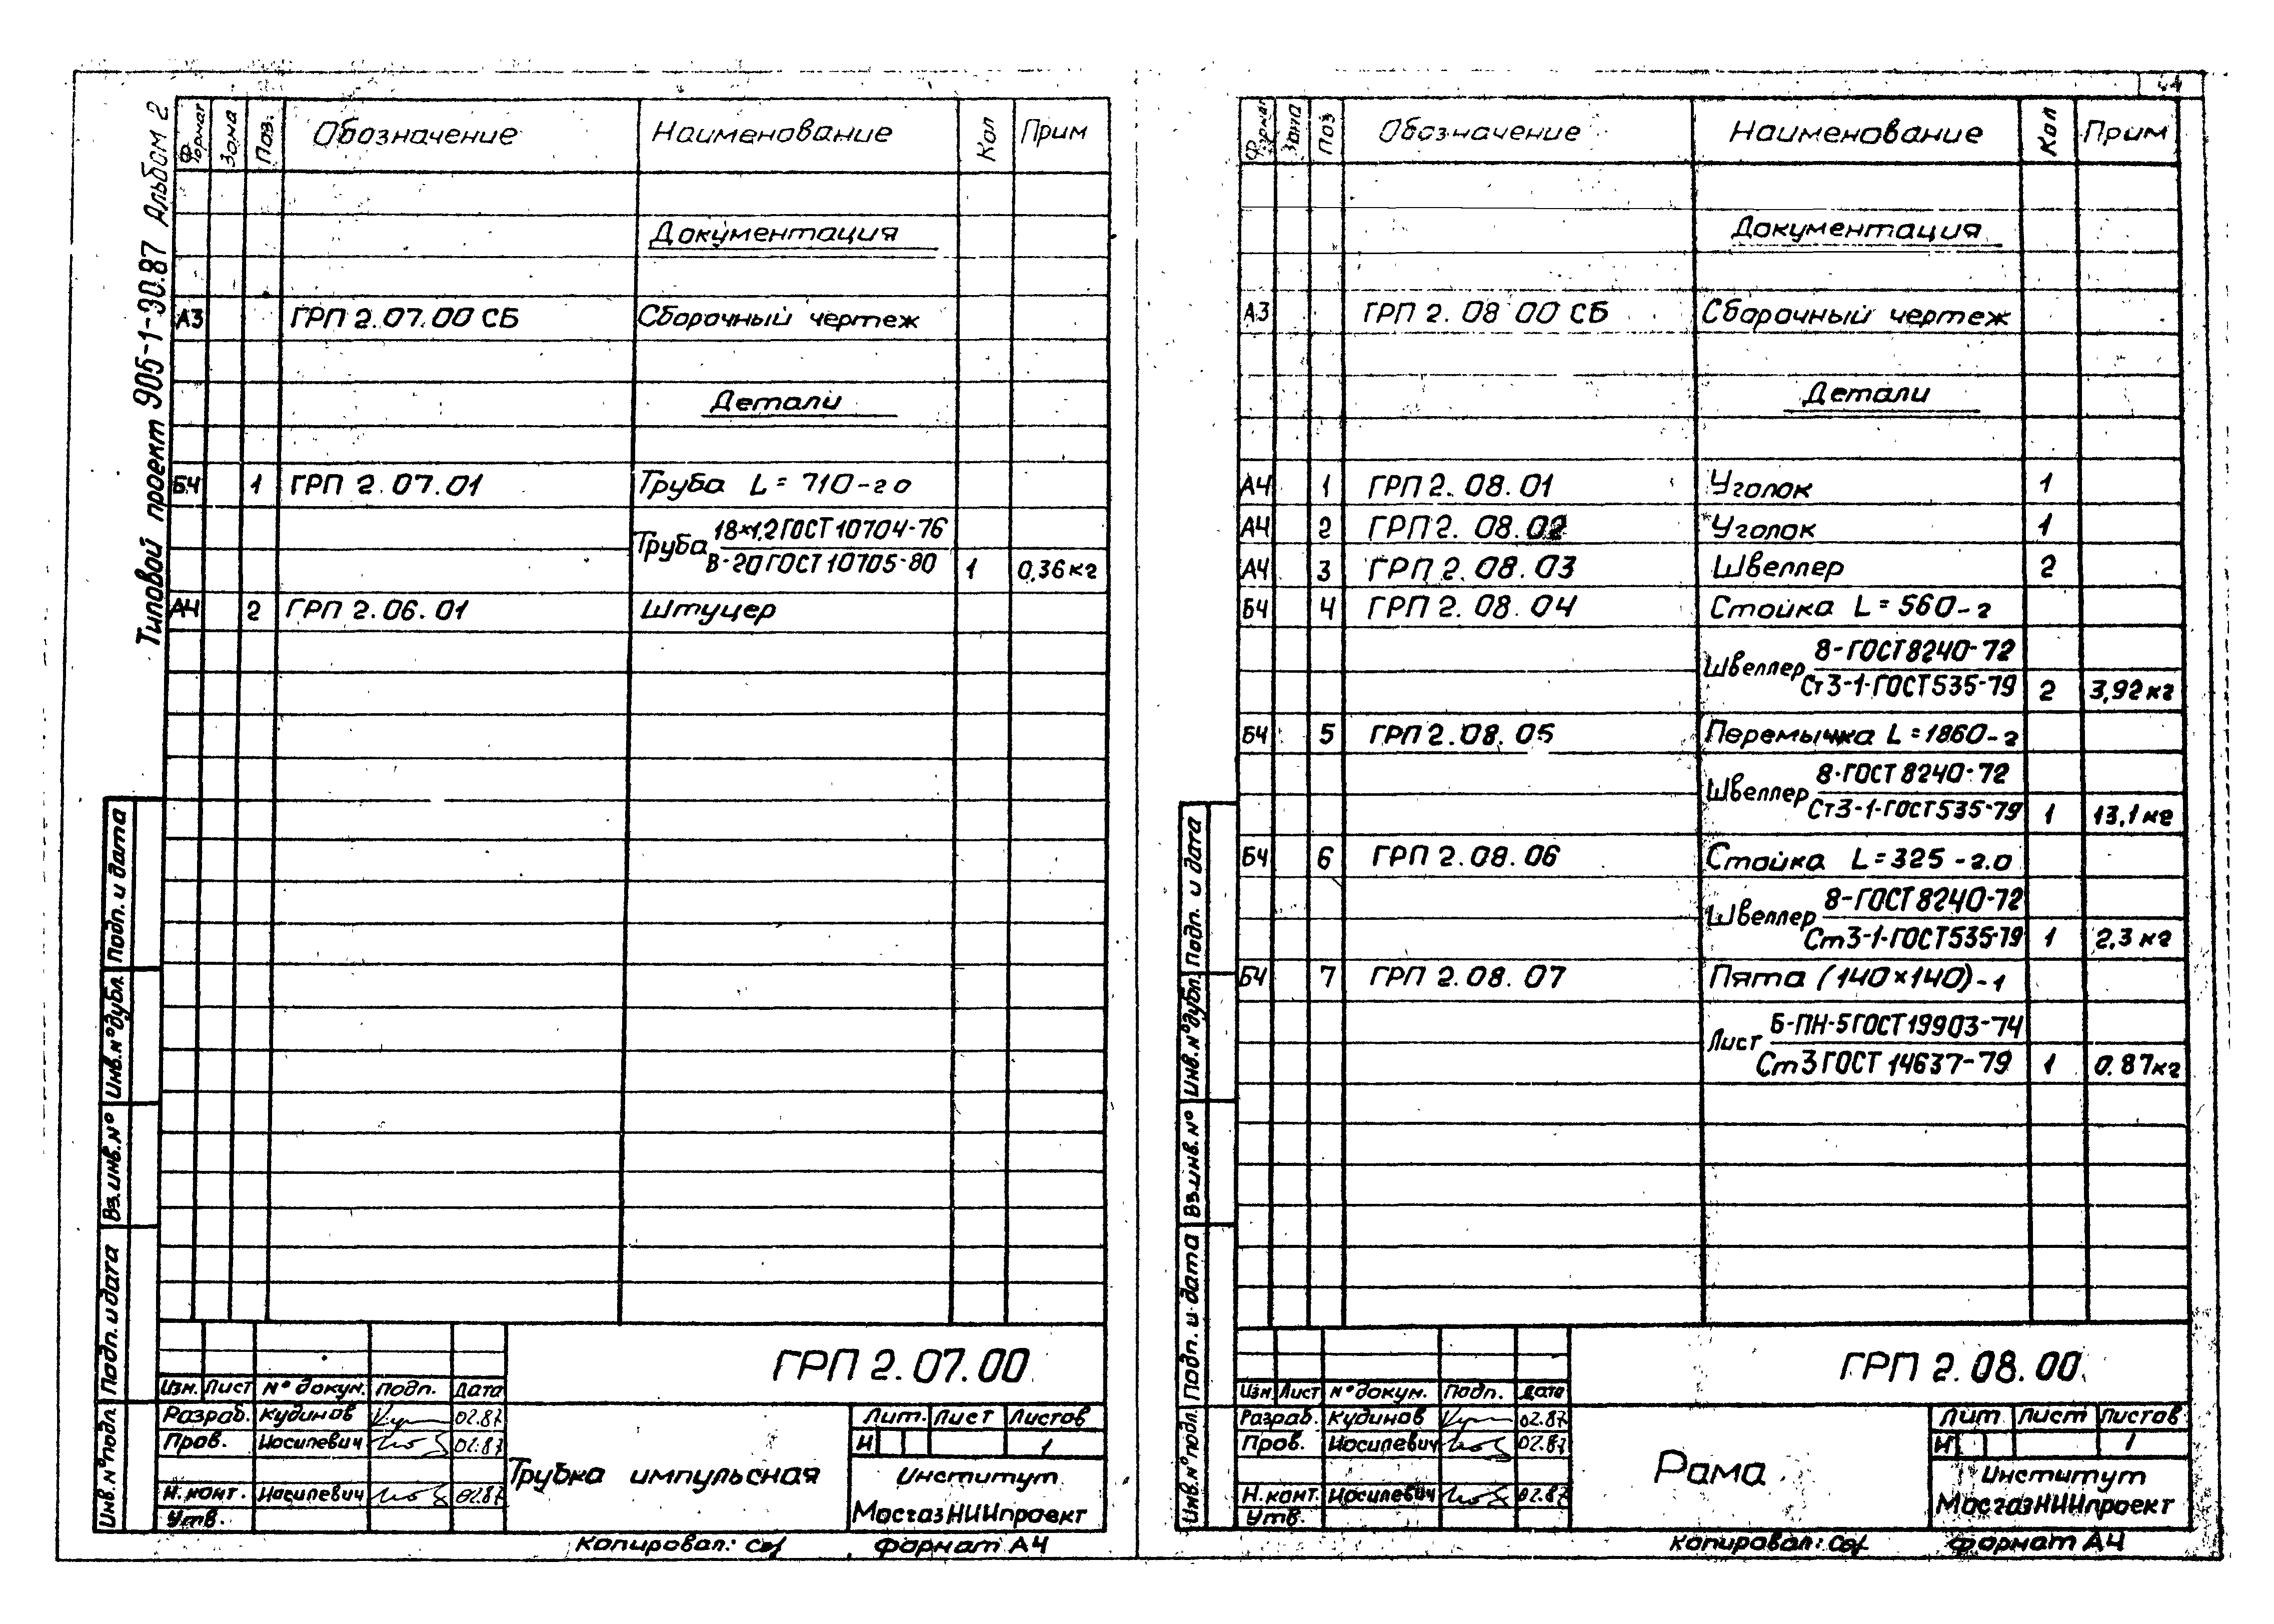 Типовой проект 905-1-30.87 Альбом 2
Формат Зона Поз. Обозначение Наименование Кол Прим
Документация
А3 ГРП 2.07.00 СБ Сборочный чертеж
Детали
БЧ 1 ГРП 2.07.01 Труба L = 710-го
Труба 18×1,2 ГОСТ 10704-76
В-20 ГОСТ 10705-80 1 0,36 кг
А4 2 ГРП 2.06.01 Штуцер
Подп. и дата
Инв.№ дубл.
Вз.инв.№
Подп. и дата
Инв.№ подл.
ГРП 2.07.00
Изм. Лист № докум. Подп. Дата
Разраб. Кудинов 02.87
Пров. Иосилевич 02.87
Н.конт. Иосилевич 02.87
Утв.
Трубка импульсная
Лит. Лист Листов
И 1
Институт
МосгазНИИпроект
Копировал: формат А4
Формат Зона Поз Обозначение Наименование Кол Прим
Документация
А3 ГРП 2. 08 00 СБ Сборочный чертеж
Детали
А4 1 ГРП 2. 08. 01 Уголок 1
А4 2 ГРП 2. 08. 02 Уголок 1
А4 3 ГРП 2. 08. 03 Швеллер 2
БЧ 4 ГРП 2. 08. 04 Стойка L = 560-г
Швеллер 8-ГОСТ 8240-72
Ст3-1-ГОСТ 535-79 2 3,92 кг
БЧ 5 ГРП 2. 08. 05 Перемычка L = 1860-г
Швеллер 8-ГОСТ 8240-72
Ст3-1-ГОСТ 535-79 1 13,1 кг
БЧ 6 ГРП 2. 08. 06 Стойка L = 325-г.о
Швеллер 8-ГОСТ 8240-72
Ст3-1-ГОСТ 535-79 1 2,3 кг
БЧ 7 ГРП 2. 08. 07 Пята (140×140)-1
Лист Б-ПН-5 ГОСТ 19903-74
Ст3 ГОСТ 14637-79 1 0.87 кг
Подп. и дата
Инв.№ дубл.
Вз.инв.№
Подп. и дата
Инв.№ подл.
ГРП 2. 08. 00.
Изм Лист № докум. Подп. Дата
Разраб. Кудинов 02.87
Пров. Иосилевич 02.87
Н.конт. Иосилевич 02.87
Утв.
Рама
Лит Лист Листов
И 1
Институт
МосгазНИИпроект
Копировал: формат А4